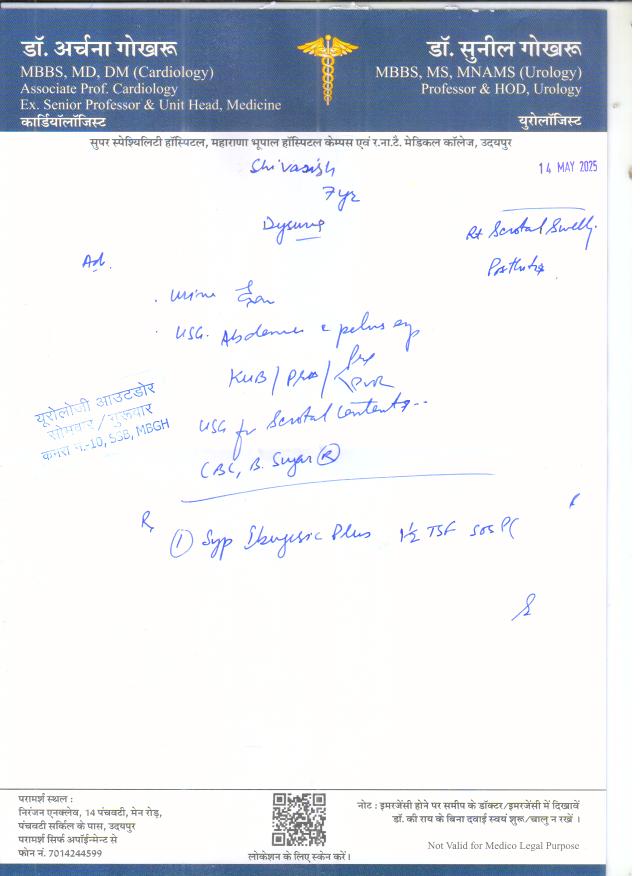 डॉ. अर्चना गोखरू
MBBS, MD, DM (Cardiology)
Associate Prof. Cardiology
Ex. Senior Professor & Unit Head, Medicine
कार्डियॉलॉजिस्ट
डॉ. सुनील गोखरू
MBBS, MS, MNAMS (Urology)
Professor & HOD, Urology
युरोलॉजिस्ट
सुपर स्पेश्यिलिटी हॉस्पिटल, महाराणा भूपाल हॉस्पिटल केम्पस एवं र.ना.टै. मेडिकल कॉलेज, उदयपुर
14 MAY 2025
Shivasish
7yr
Dysuria
Rt Scrotal Swelly.
Ad.
. urine
. USG. Abdomen c pelvis
KUB / / Pre PVR
USG for Scrotal Contents
CBC, B. Sugar (R)
यूरोलोजी आउटडोर
सोमवार / शुक्रवार
कमरा न.-10, SSB, MBGH
R
(1) Syp Ibugesic Plus 1½ TSF SOS PC
परामर्श स्थल :
निरंजन एनक्लेव, 14 पंचवटी, मेन रोड़,
पंचवटी सर्किल के पास, उदयपुर
परामर्श सिर्फ अपॉईनमेन्ट से
फोन नं. 7014244599
लोकेशन के लिए स्केन करें।
नोट : इमरजेंसी होने पर समीप के डॉक्टर/इमरजेंसी में दिखावें
डॉ. की राय के बिना दवाई स्वयं शुरू/चालु न रखें ।
Not Valid for Medico Legal Purpose